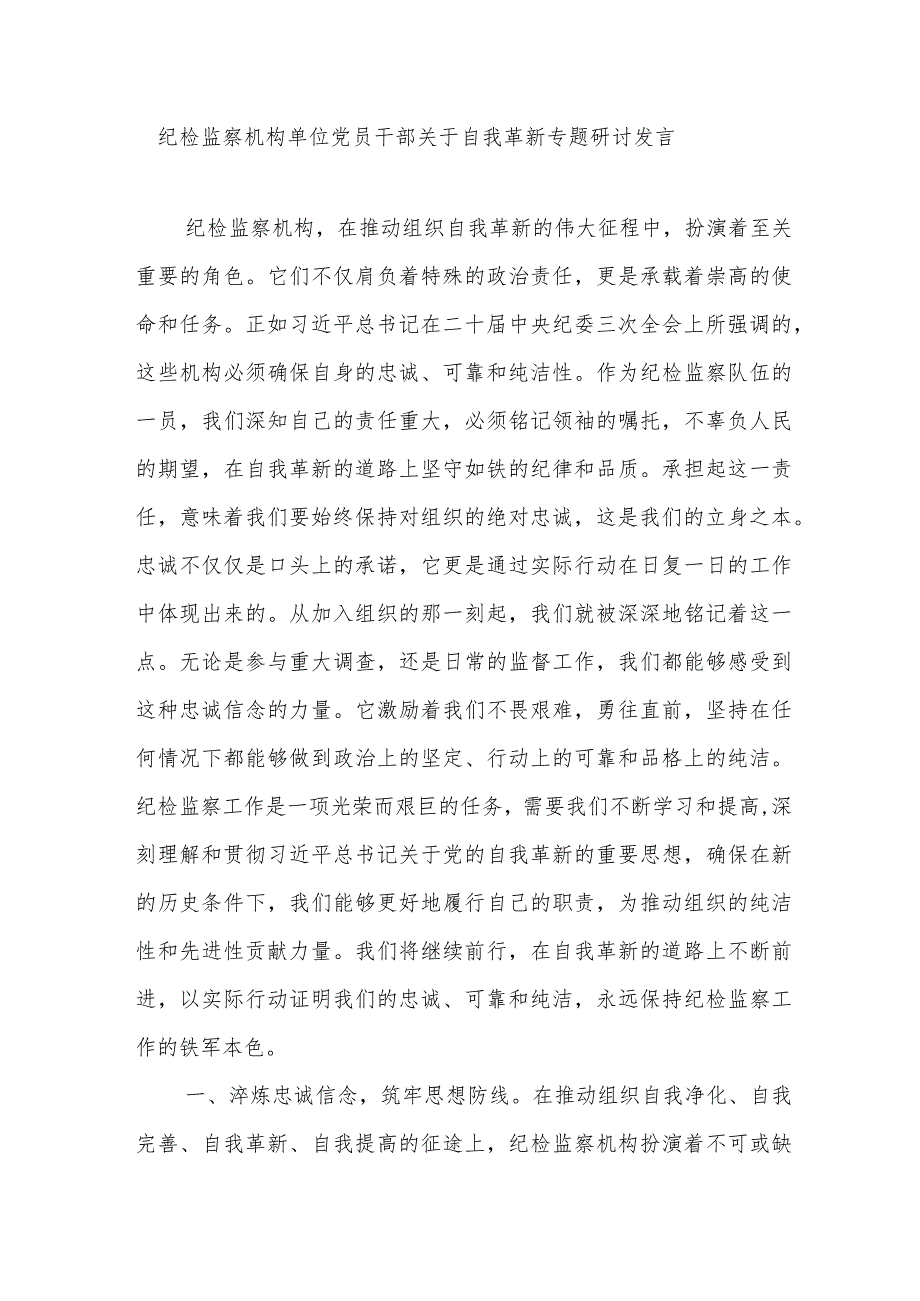 纪检监察机构单位党员干部关于自我革新专题研讨发言
纪检监察机构，在推动组织自我革新的伟大征程中，扮演着至关
重要的角色。它们不仅肩负着特殊的政治责任，更是承载着崇高的使
命和任务。正如习近平总书记在二十届中央纪委三次全会上所强调的，
这些机构必须确保自身的忠诚、可靠和纯洁性。作为纪检监察队伍的
一员，我们深知自己的责任重大，必须铭记领袖的嘱托，不辜负人民
的期望，在自我革新的道路上坚守如铁的纪律和品质。承担起这一责
任，意味着我们要始终保持对组织的绝对忠诚，这是我们的立身之本。
忠诚不仅仅是口头上的承诺，它更是通过实际行动在日复一日的工作
中体现出来的。从加入组织的那一刻起，我们就被深深地铭记着这一
点。无论是参与重大调查，还是日常的监督工作，我们都能够感受到
这种忠诚信念的力量。它激励着我们不畏艰难，勇往直前，坚持在任
何情况下都能够做到政治上的坚定、行动上的可靠和品格上的纯洁。
纪检监察工作是一项光荣而艰巨的任务，需要我们不断学习和提高,深
刻理解和贯彻习近平总书记关于党的自我革新的重要思想，确保在新
的历史条件下，我们能够更好地履行自己的职责，为推动组织的纯洁
性和先进性贡献力量。我们将继续前行，在自我革新的道路上不断前
进，以实际行动证明我们的忠诚、可靠和纯洁，永远保持纪检监察工
作的铁军本色。
一、淬炼忠诚信念，筑牢思想防线。在推动组织自我净化、自我
完善、自我革新、自我提高的征途上，纪检监察机构扮演着不可或缺